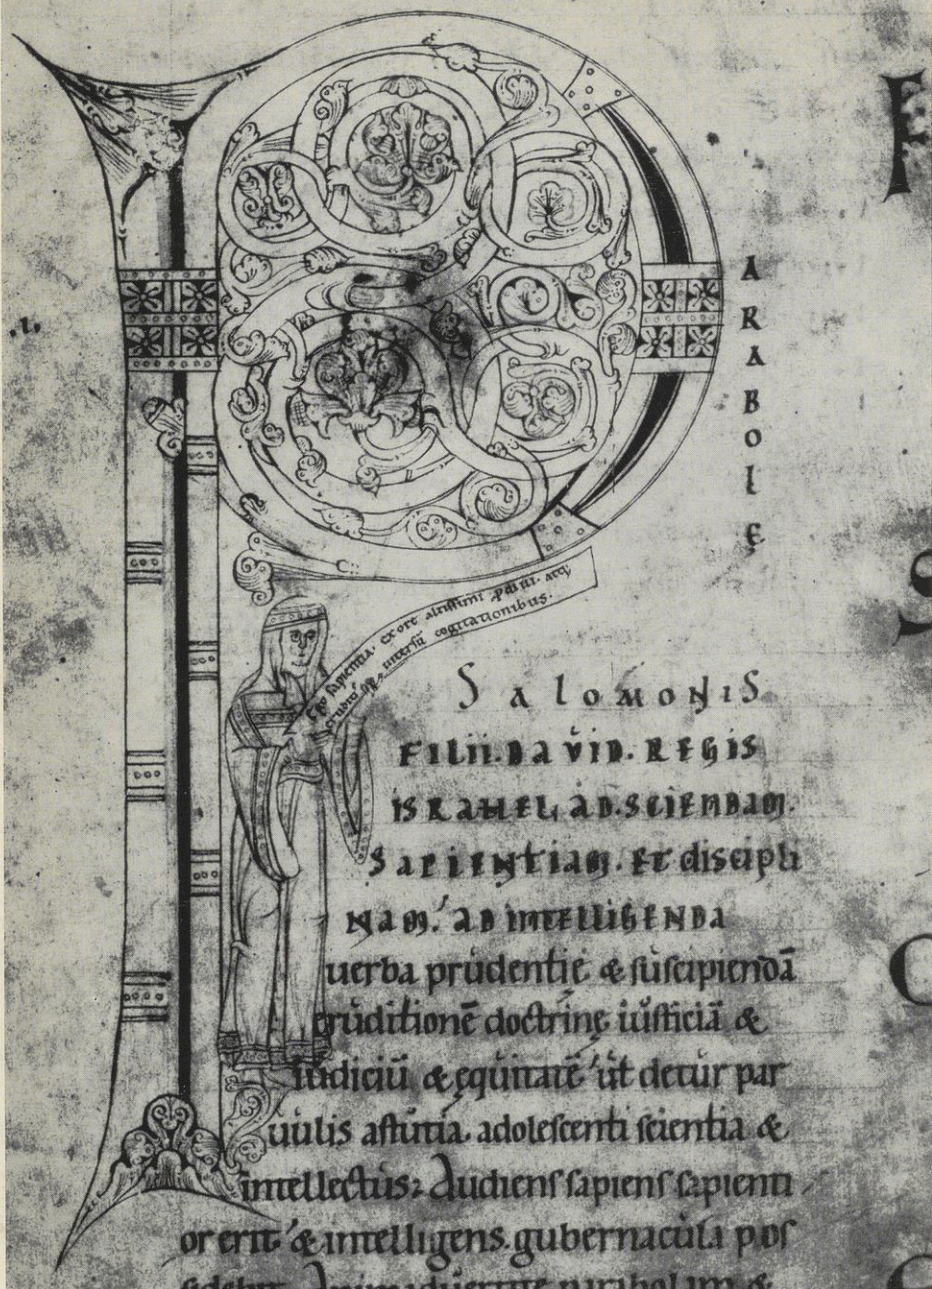 .I.
P
ARABOLĘ
Ego sapientia. ex ore altissimi
cogitationibus.
SalomoniS
FILII. DAVID. REGIS
ISRAHEL AD. SCIENDAM.
SAPIENTIAM. ET discipli
NAM. AD INTELLIGENDA
uerba prudentię & suscipiendā
eruditionē doctrinę iusticiā &
iudiciū & ęquitatē ut detur par
uulis astutia. adolescenti scientia &
intellectus; Audiens sapiens sapienti
or erit & intelligens. gubernacula pos
sidebit Animaduertet parabolam &